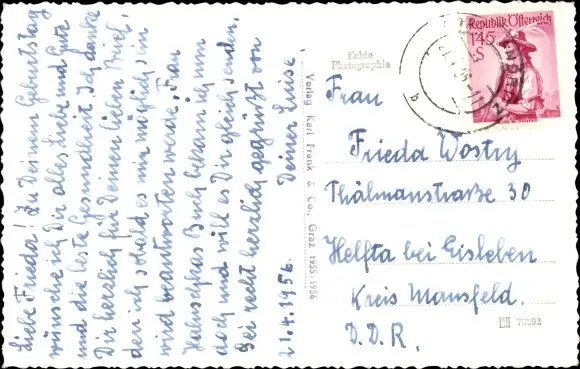 Liebe Frieda! Zu Deinem Geburtstag
wünsche ich Dir alles Liebe und Gute
und die beste Gesundheit. Ich danke
Dir herzlich für Deinen lieben Brief,
den ich sobald es mir möglich ist
wird beantworten werde. Frau
Buch bekam ich nun
doch und will es Dir gleich senden.
Sei recht herzlich gegrüßt von
21.4.1956. Deiner Luise.
Verlag Karl Frank & Co., Graz 1955-1956
Echte
Photographie
Republik Österreich
1'45
S
b
Frau
Frieda Wostry
Thälmannstraße 30
Helfta bei Eisleben
Kreis Mansfeld.
D.D.R.
70292